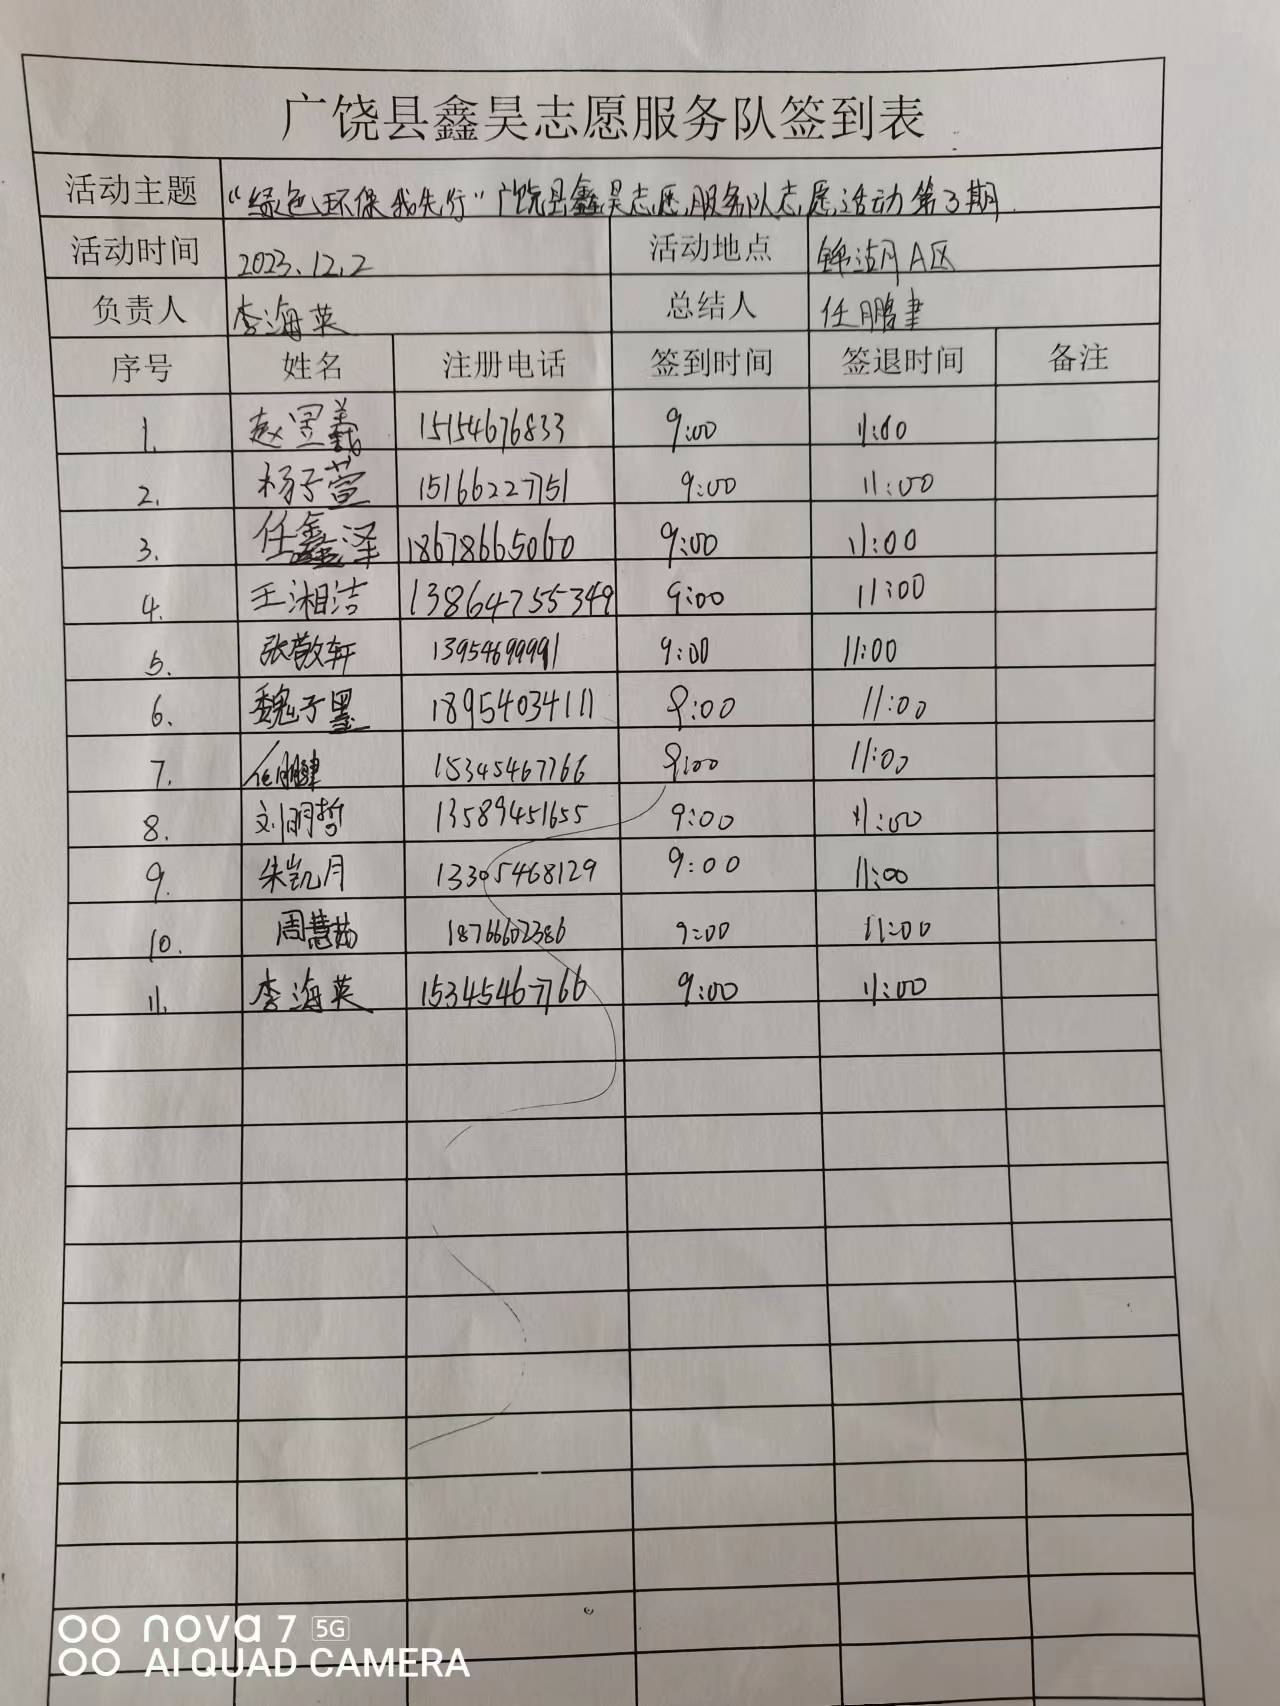 广饶县鑫昊志愿服务队签到表
活动主题 “绿色环保我先行”广饶县鑫昊志愿服务队志愿活动第3期
活动时间 2023.12.2 活动地点 锦湖月A区
负责人 李海英 总结人 任鹏聿
序号 姓名 注册电话 签到时间 签退时间 备注
1. 赵昱羲 15154676833 9:00 11:00
2. 杨子萱 15166227151 9:00 11:00
3. 任鑫泽 18678665060 9:00 11:00
4. 王湘洁 13864755349 9:00 11:00
5. 张敬轩 13954699991 9:00 11:00
6. 魏子墨 18954034111 9:00 11:00
7. 任鹏聿 15345467766 9:00 11:00
8. 刘明哲 13589451655 9:00 11:00
9. 朱凯月 13305468129 9:00 11:00
10. 周慧茹 18766602386 9:00 11:00
11. 李海英 15345467766 9:00 11:00
nova 7 5G
AI QUAD CAMERA